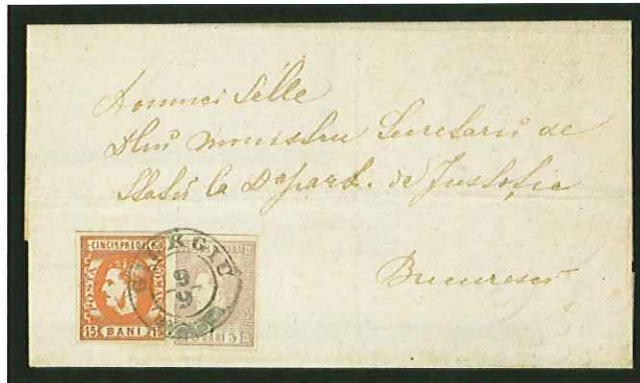 Domnei Selle
Dlui Ministru Secretariu de
Statu la Depart. de Justiţia
Bucuresci
CINCISPREDECE
POSTA ROMANA
15 BANI 15
GIURGIU
9
9
BANI 3